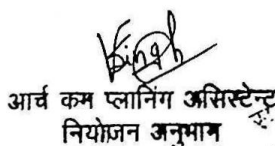 Singh
आर्च कम प्लानिंग असिस्टेन्ट
नियोजन अनुभाग